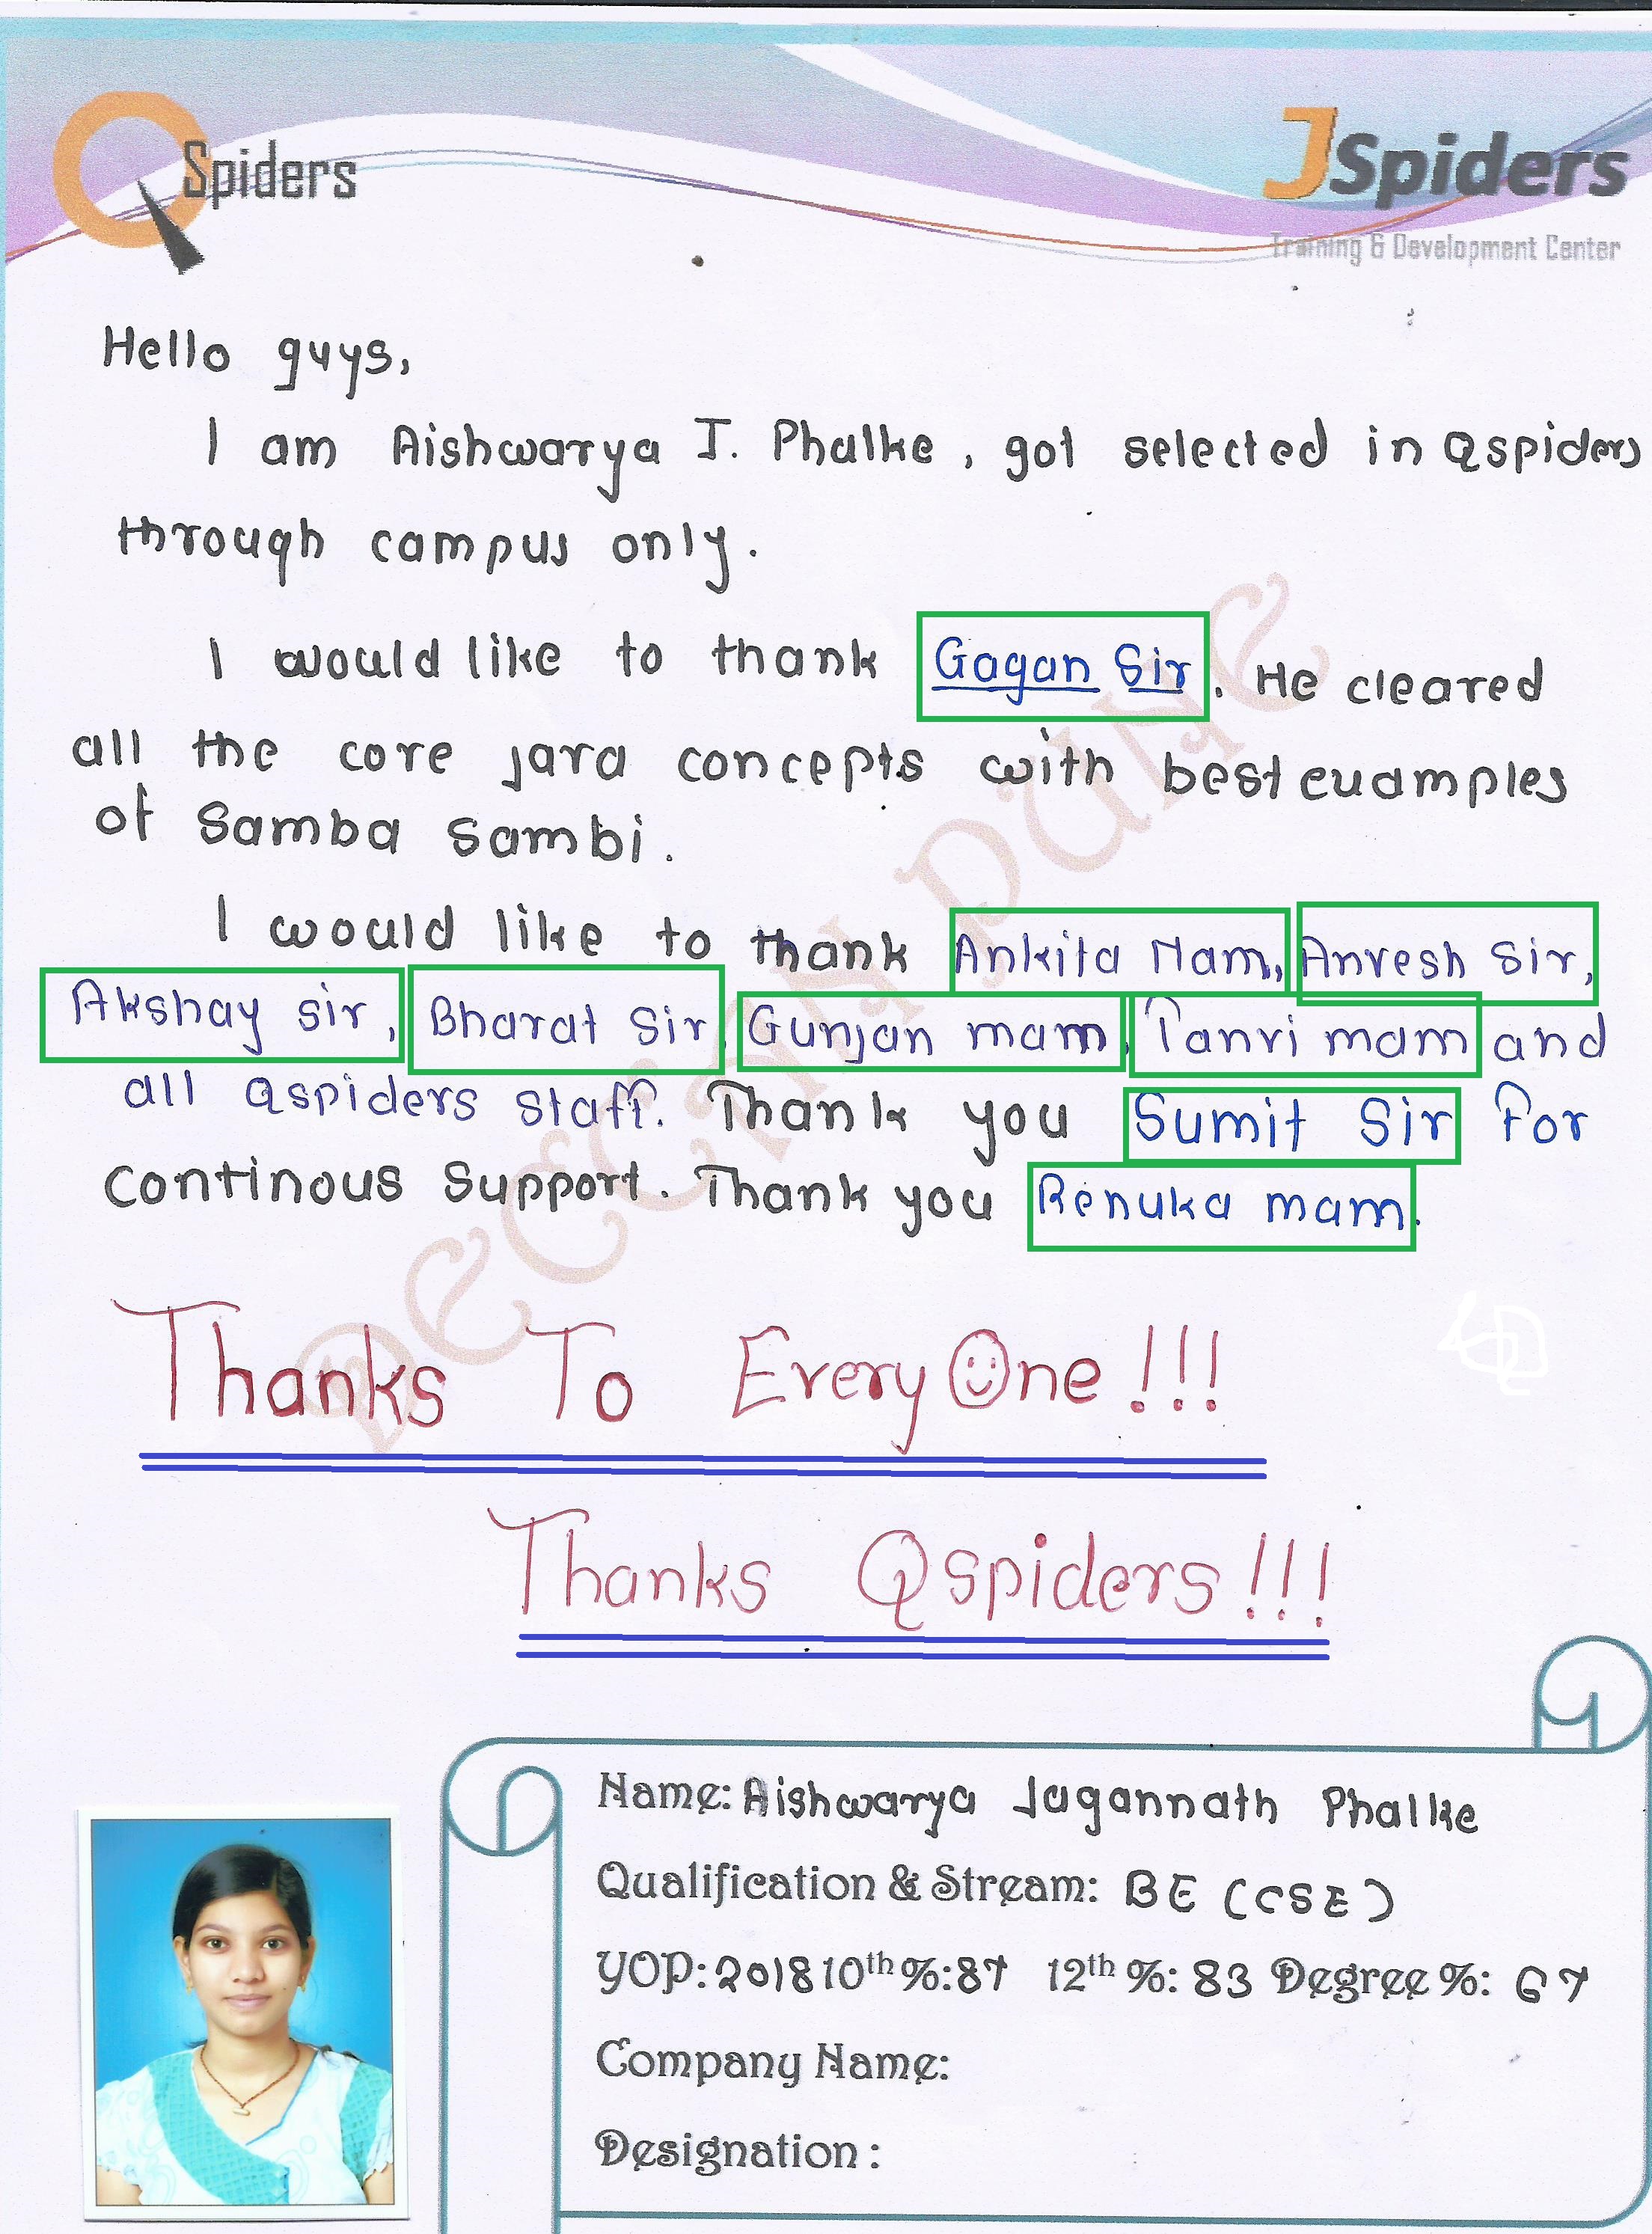 QSpiders
JSpiders
Training & Development Center
Hello guys,
I am Aishwarya J. Phalke, got selected in Qspiders
through campus only.
I would like to thank Gagan Sir. He cleared
all the core java concepts with best examples
of Samba Sambi.
I would like to thank Ankita Mam, Anvesh Sir,
Akshay sir, Bharat Sir, Gunjan mam, Tanvi mam and
all Qspiders staff. Thank you Sumit Sir For
continous Support. Thank you Renuka mam.
DECCAN PUNE
Thanks To EveryOne!!!
Thanks Qspiders!!!
Name: Aishwarya Jagannath Phalke
Qualification & Stream: BE (CSE)
YOP: 2018 10th %: 87 12th %: 83 Degree %: 67
Company Name:
Designation :